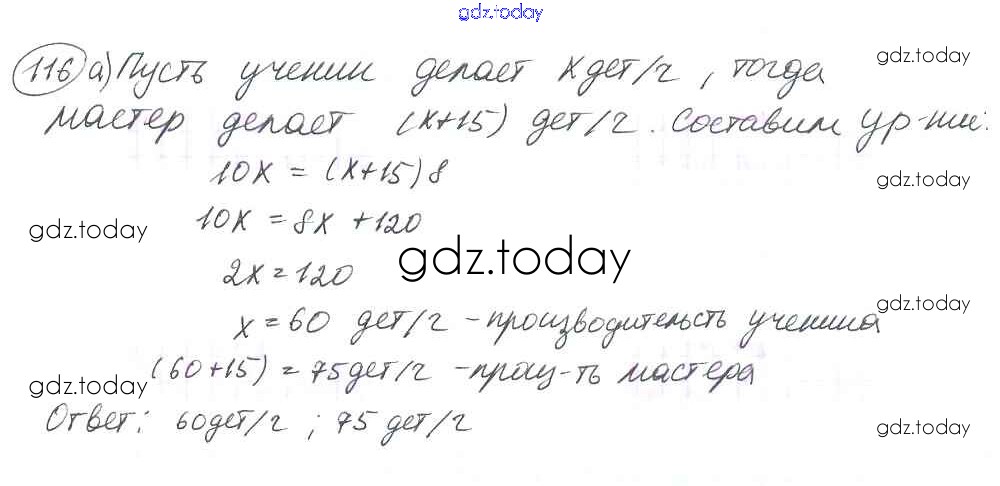 gdz.today
116 а) Пусть ученик делает x дет/ч, тогда gdz.today
мастер делает (x+15) дет/ч. Составим ур-ние:
10x = (x+15)8 gdz.today
10x = 8x + 120
gdz.today
2x = 120 gdz.today
x = 60 дет/ч - производительсть ученика gdz.today
(60+15) = 75 дет/ч - -ть мастера
gdz.today
Ответ: 60 дет/ч ; 75 дет/ч gdz.today